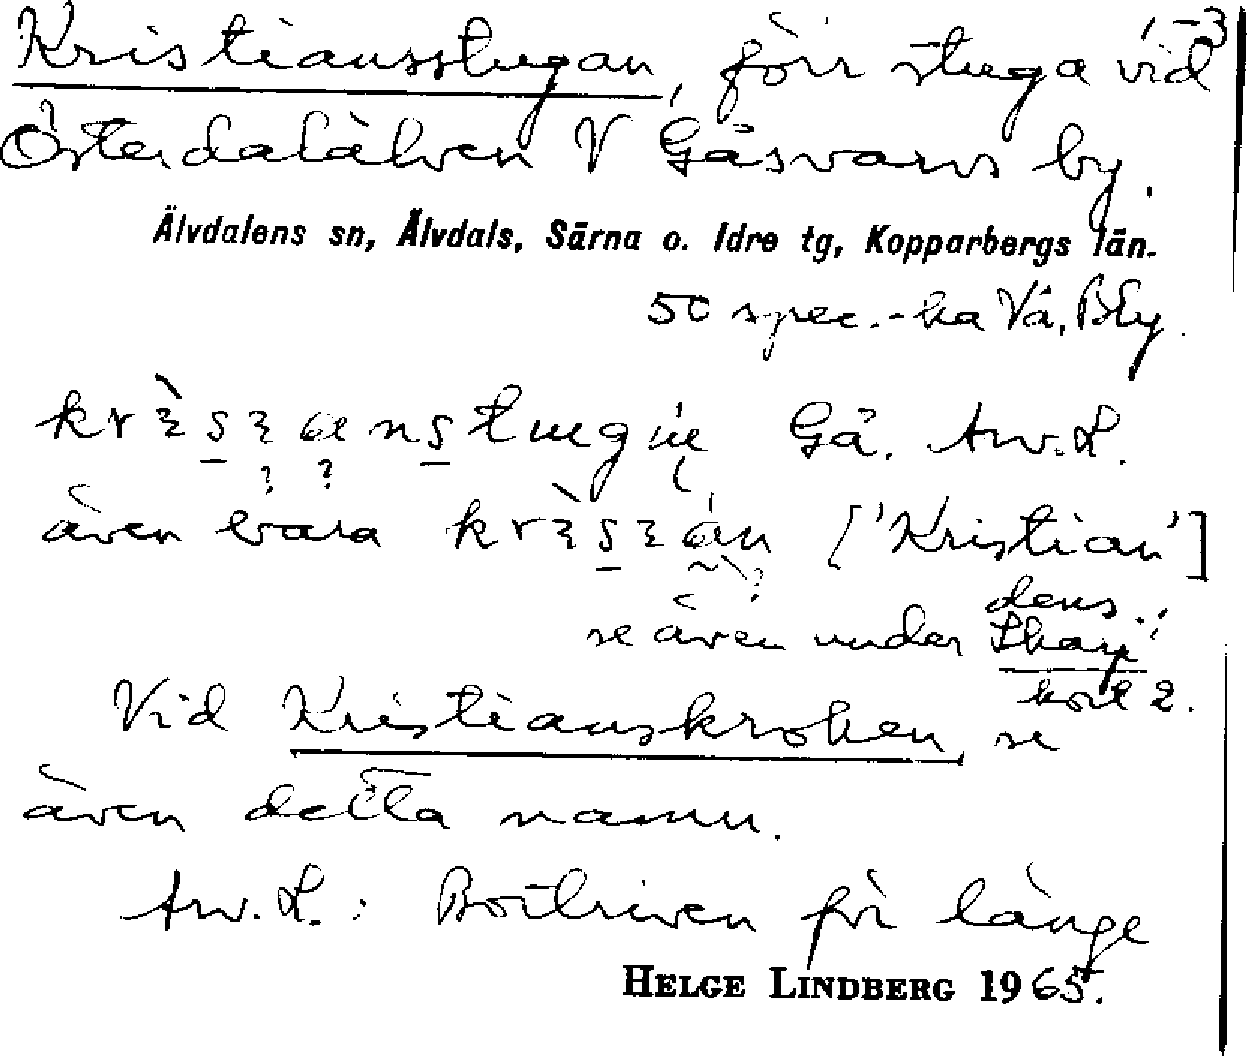 1-3
Kristiansstugan, förr stuga vid
Österdalälven V Gåsvarvs by.
Älvdalens sn, Älvdals, Särna o. Idre tg, Kopparbergs län.
50 spec.-ka Vå, Bly.
Gå. Anv. L.
även bara ['Kristian']
se även under dens.:
kort 2.
Vid Kristianskroken, se
även detta namn.
Anv. L.: Bortriven för länge
HELGE LINDBERG 1965.